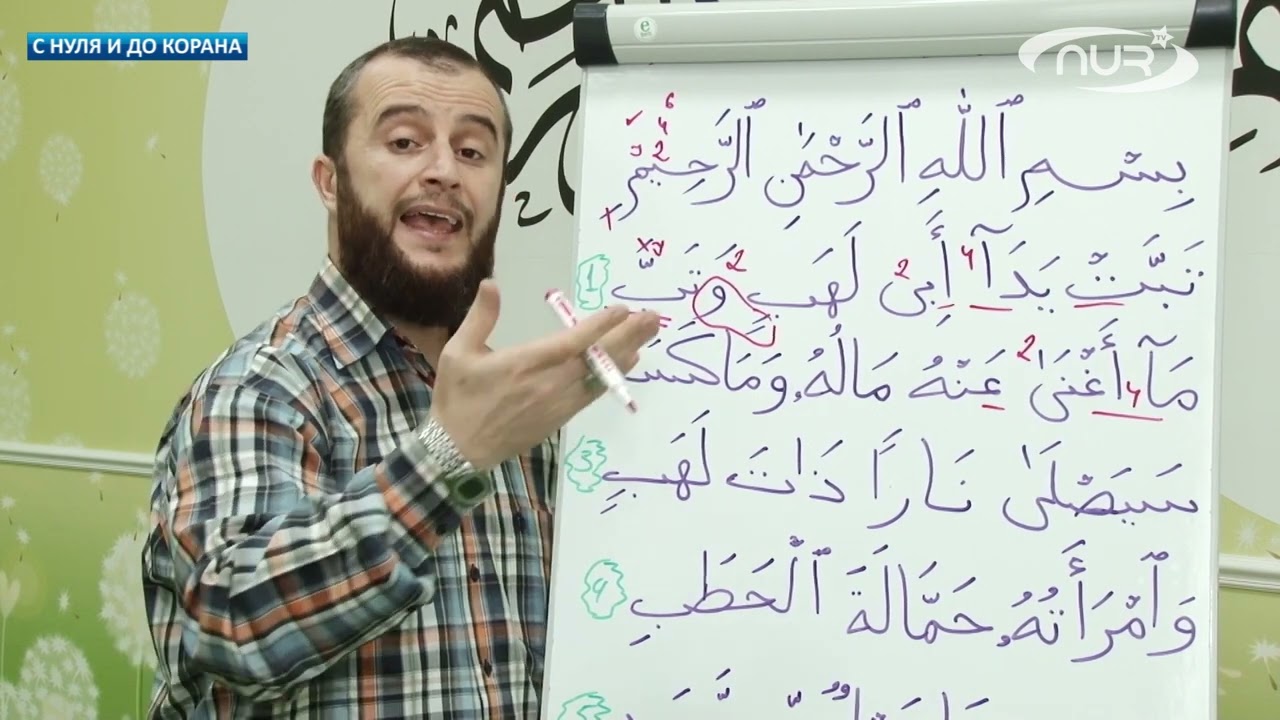 С НУЛЯ И ДО КОРАНА
NUR TV
بِسْمِ ٱللَّهِ ٱلرَّحْمَٰنِ ٱلرَّحِيمِ
تَبَّتْ يَدَآ أَبِى لَهَبٍ وَتَبَّ 1
مَآ أَغْنَىٰ عَنْهُ مَالُهُۥ وَمَا كَسَبَ
سَيَصْلَىٰ نَارًا ذَاتَ لَهَبٍ 3
وَٱمْرَأَتُهُۥ حَمَّالَةَ ٱلْحَطَبِ ٩